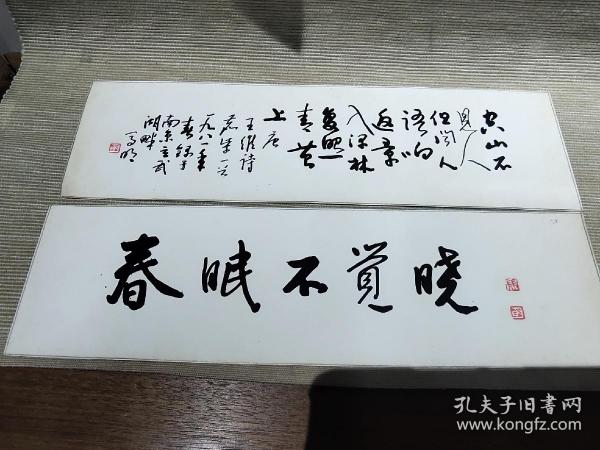 空山不
见人
但闻人
语响
返景
入深林
复照
青苔
上 唐
王维诗
一九八一年
春录于
南京玄武
湖畔
春眠不觉晓
孔夫子旧书网
www.kongfz.com